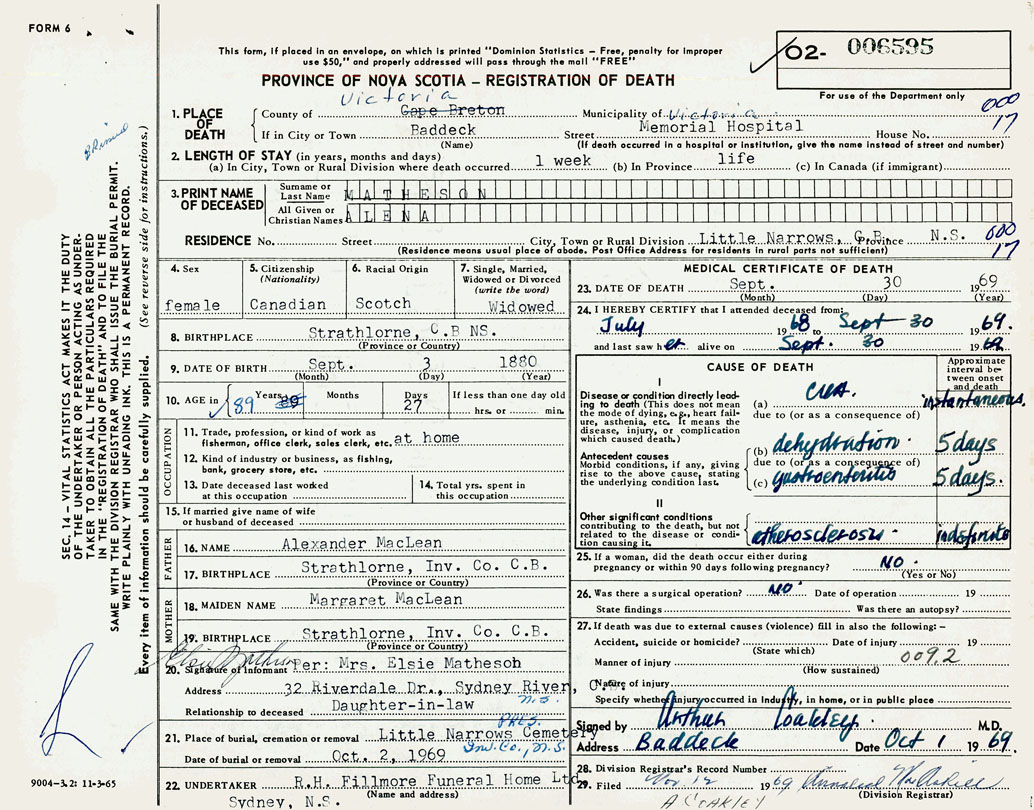 FORM 6
This form, if placed in an envelope, on which is printed "Dominion Statistics – Free, penalty for improper
use $50," and properly addressed will pass through the mail "FREE"
PROVINCE OF NOVA SCOTIA – REGISTRATION OF DEATH
O2- 006595
For use of the Department only
Victoria
1. PLACE OF DEATH
County of Cape Breton Municipality of Victoria 000
If in City or Town Baddeck Street Memorial Hospital House No. 17
(Name) (If death occurred in a hospital or institution, give the name instead of street and number)
2. LENGTH OF STAY (in years, months and days)
(a) In City, Town or Rural Division where death occurred 1 week (b) In Province life (c) In Canada (if immigrant)
3. PRINT NAME OF DECEASED
Surname or Last Name MATHESON
All Given or Christian Names ALENA
RESIDENCE No. Street City, Town or Rural Division Little Narrows, C.B. Province N.S. 000
(Residence means usual place of abode. Post Office Address for residents in rural parts not sufficient) 17
4. Sex female
5. Citizenship (Nationality) Canadian
6. Racial Origin Scotch
7. Single, Married, Widowed or Divorced (write the word) Widowed
8. BIRTHPLACE Strathlorne, C.B NS.
(Province or Country)
9. DATE OF BIRTH Sept. 3 1880
(Month) (Day) (Year)
10. AGE in Years 89 Months Days 27 If less than one day old hrs. or min.
OCCUPATION
11. Trade, profession, or kind of work as fisherman, office clerk, sales clerk, etc. at home
12. Kind of industry or business, as fishing, bank, grocery store, etc.
13. Date deceased last worked at this occupation
14. Total yrs. spent in this occupation
15. If married give name of wife or husband of deceased
FATHER
16. NAME Alexander MacLean
17. BIRTHPLACE Strathlorne, Inv. Co. C.B.
(Province or Country)
MOTHER
18. MAIDEN NAME Margaret MacLean
19. BIRTHPLACE Strathlorne, Inv. Co. C.B.
(Province or Country)
Elsie Matheson
20. Signature of Informant Per: Mrs. Elsie Matheson
Address 32 Riverdale Dr., Sydney River, C.B.
N.S.
Relationship to deceased Daughter-in-law
PRES.
21. Place of burial, cremation or removal Little Narrows Cemetery
Inv. Co., N.S.
Date of burial or removal Oct. 2, 1969
22. UNDERTAKER R.H. Fillmore Funeral Home Ltd.
(Name and address)
Sydney, N.S.
MEDICAL CERTIFICATE OF DEATH
23. DATE OF DEATH Sept. 30 1969
(Month) (Day) (Year)
24. I HEREBY CERTIFY that I attended deceased from:
July 1968 to Sept 30 1969.
and last saw her alive on Sept. 30 1969
CAUSE OF DEATH
Approximate interval between onset and death
I
Disease or condition directly leading to death (This does not mean the mode of dying, e.g., heart failure, asthenia, etc. It means the disease, injury, or complication which caused death.)
(a) CVA. instantaneous.
due to (or as a consequence of)
Antecedent causes
Morbid conditions, if any, giving rise to the above cause, stating the underlying condition last.
(b) dehydration. 5 days
due to (or as a consequence of)
(c) gastroenteritis 5 days.
II
Other significant conditions contributing to the death, but not related to the disease or condition causing it.
atherosclerosis. indefinite
25. If a woman, did the death occur either during pregnancy or within 90 days following pregnancy? NO.
(Yes or No)
26. Was there a surgical operation? NO. Date of operation 19
State findings Was there an autopsy?
27. If death was due to external causes (violence) fill in also the following:–
Accident, suicide or homicide? Date of injury 19
(State which)
Manner of injury 009.2
(How sustained)
Nature of injury
Specify whether injury occurred in Industry, in home, or in public place
Signed by Arthur Coakley M.D.
Address Baddeck Date Oct 1 1969.
28. Division Registrar's Record Number
29. Filed Nov 12 1969
(Division Registrar)
A COAKLEY
SEC. 14 – VITAL STATISTICS ACT MAKES IT THE DUTY
OF THE UNDERTAKER OR PERSON ACTING AS UNDER-
TAKER TO OBTAIN ALL THE PARTICULARS REQUIRED
IN THE "REGISTRATION OF DEATH" AND TO FILE THE
SAME WITH THE DIVISION REGISTRAR WHO SHALL ISSUE THE BURIAL PERMIT.
WRITE PLAINLY WITH UNFADING INK. THIS IS A PERMANENT RECORD.
Every item of information should be carefully supplied. (See reverse side for instructions.)
9004-3.2: 11-3-65